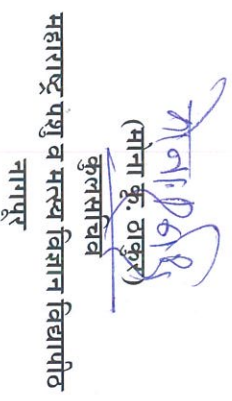 (मोना कृ. ठाकुर)
कुलसचिव
महाराष्ट्र पशु व मत्स्य विज्ञान विद्यापीठ
नागपूर